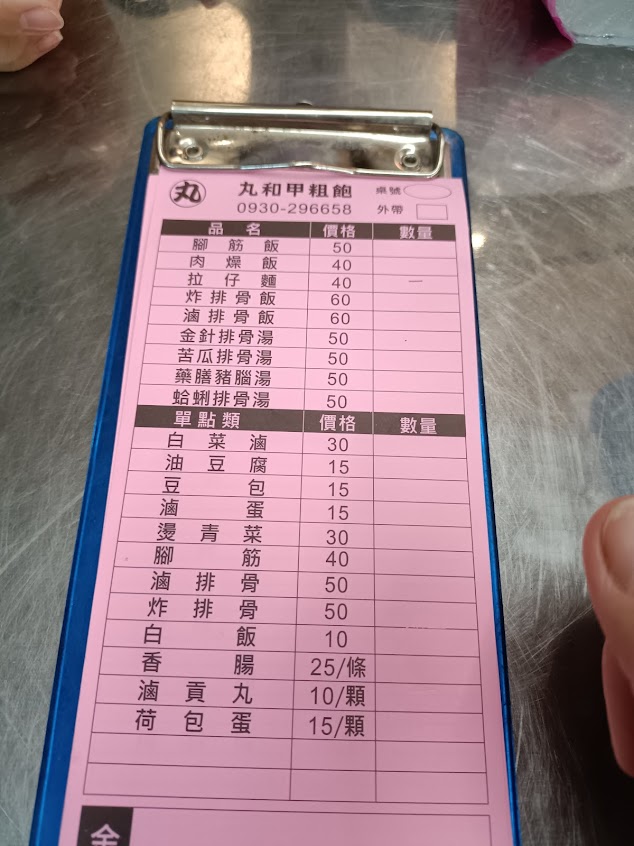 丸 丸和甲粗飽 桌號
0930-296658 外帶
品名 價格 數量
腳筋飯 50
肉燥飯 40
拉仔麵 40 一
炸排骨飯 60
滷排骨飯 60
金針排骨湯 50
苦瓜排骨湯 50
藥膳豬腦湯 50
蛤蜊排骨湯 50
單點類 價格 數量
白菜滷 30
油豆腐 15
豆包 15
滷蛋 15
燙青菜 30
腳筋 40
滷排骨 50
炸排骨 50
白飯 10
香腸 25/條
滷貢丸 10/顆
荷包蛋 15/顆